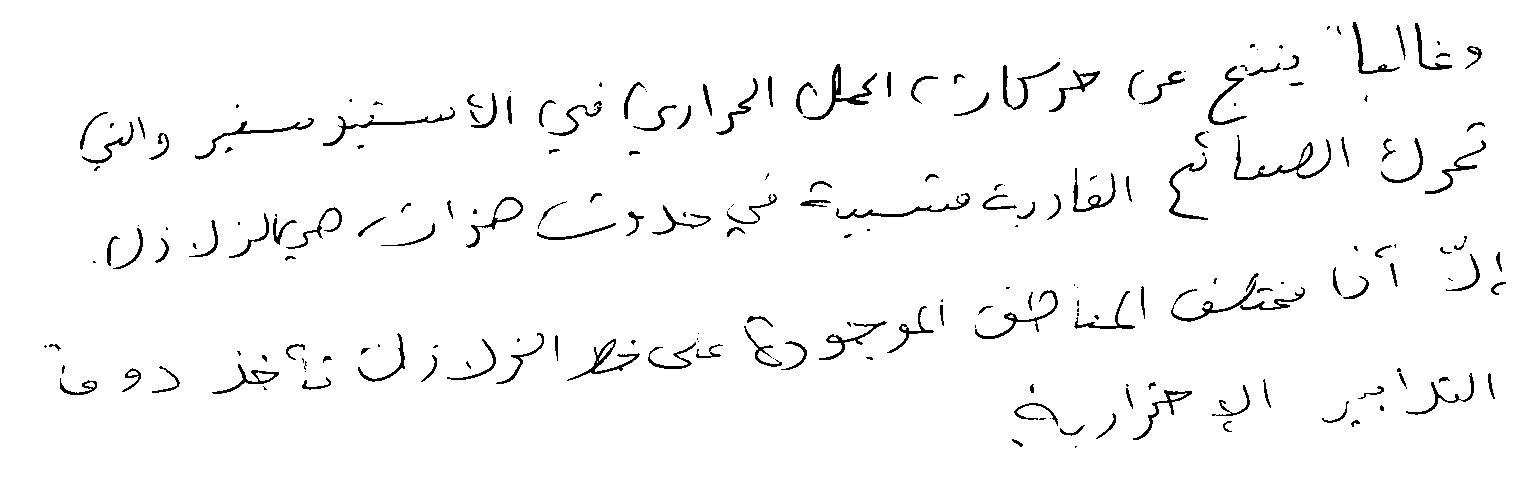 وغالباً ينتج عن حركات الحمل الحراري في الأستينوسفير والتي
تحرك الصفائح القارية متسببة في حدوث هزات هي الزلازل.
إلّا أن مختلف المناطق الموجودة على خط الزلازل تأخذ دوماً
التدابير الإحترازية